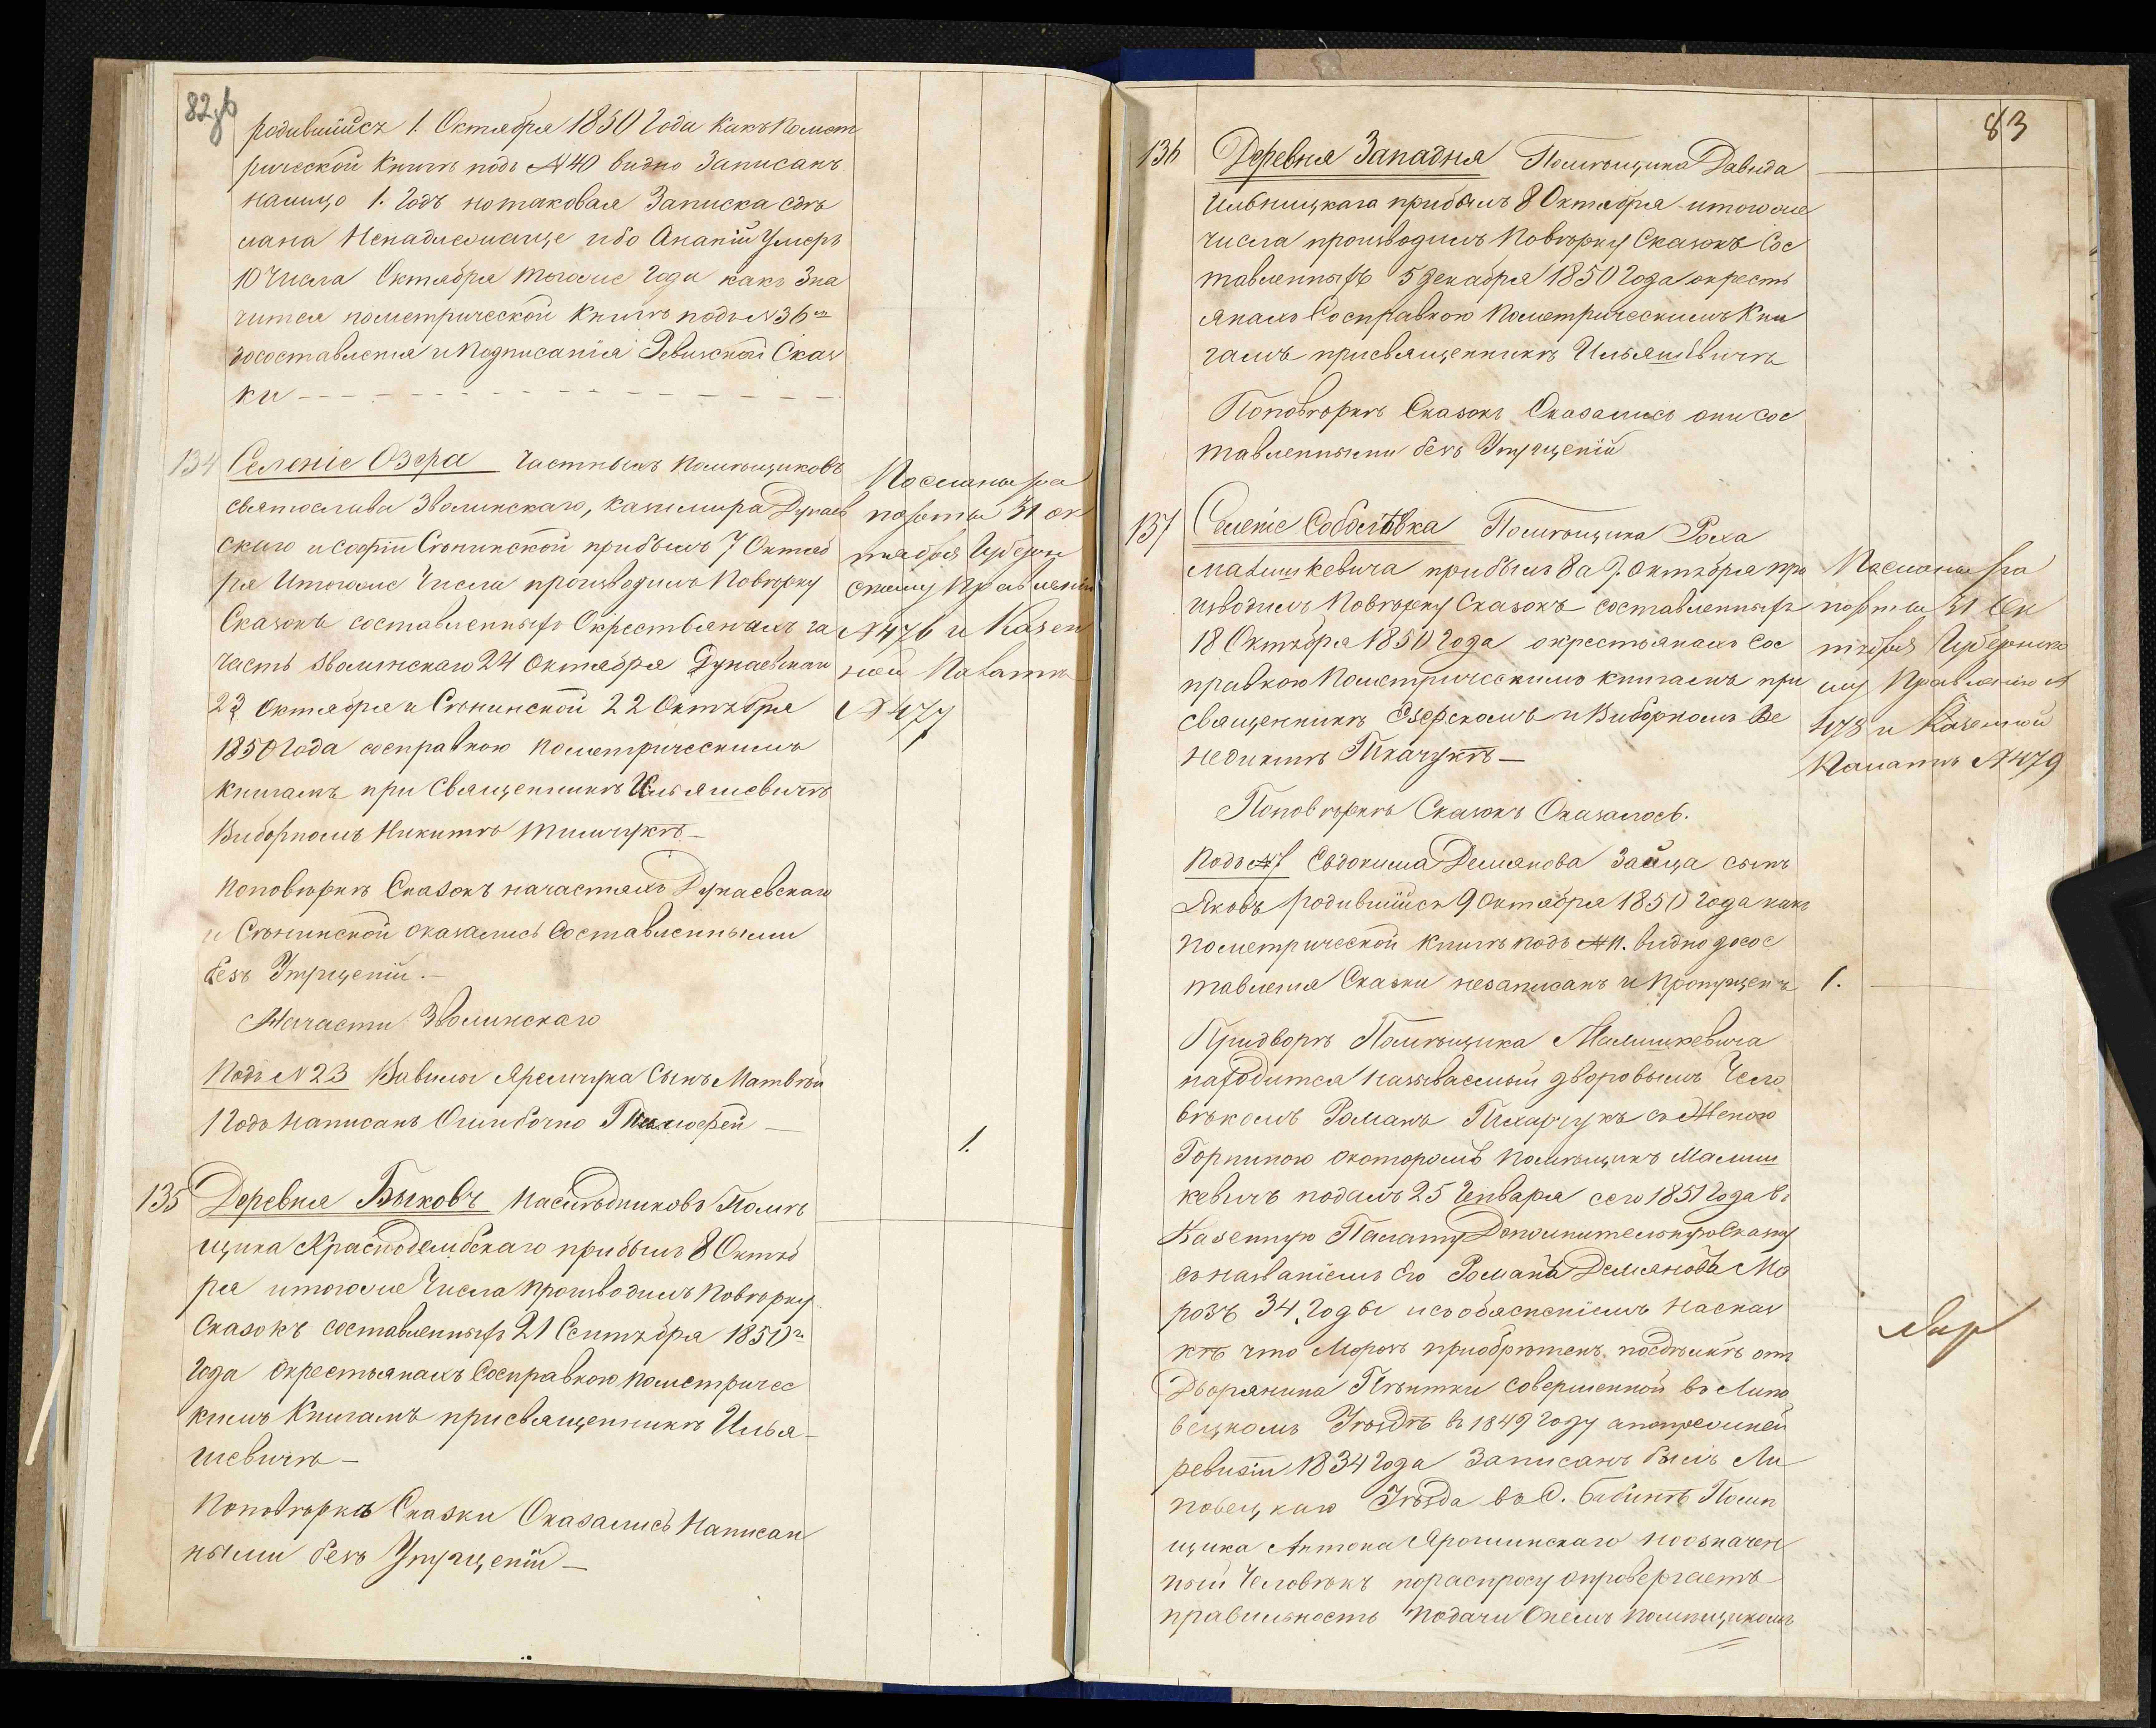 82 об
родившійся 1. Октября 1850 Года какъ помет
рической Книгѣ подъ №40 видно Записанъ
налицо 1. Годъ но таковая Записка сдѣ
лана Ненадлежаще ибо Ананій Умеръ
10 Числа Октября тогоже Года какъ Зна
чится пометрической Книгѣ подъ №36 м
досоставленія и Подписанія Ревизской Сказ
ки
134 Селеніе Озера Частныхъ помѣщиковъ
святослава Зволинскаго, казимира Дунаев
скаго и софіи Сѣнинской прибылъ 7 Октяб
ря Итогоже Числа производилъ Повѣрку
Сказокъ составленныхъ Окрестьянахъ на
часть Зволинскаго 24 Октября Дунаевскаго
23 Октября и Сѣнинской 22 Октября
1850 Года сосправкою пометрическимъ
книгамъ при Священникѣ Ильяшевичѣ
Виборномъ Никитѣ Тимчукѣ
Поповѣркѣ Сказокъ начастяхъ Дунаевскаго
и Сѣнинской оказались Составленными
безъ Упущеній.
Начасти Зволинскаго
Подъ №23 Вавилы Яремчука Сынъ Матвѣй
1 Годъ написанъ Ошибочно Тимофей
1.
Посланы ра
порты 31 ок
тября Губерн
скому Правленію
№476 и Казен
ной Палатѣ
№477
135 Деревня Быковъ Наслѣдниковъ Помѣ
щика Красподембскаго прибылъ 8 Октяб
ря итогоже Числа производилъ Повѣрку
Сказокъ составленныхъ 21 Сентября 1850 г
Года Окрестьянахъ Сосправкою пометричес
кимъ Книгамъ присвященникѣ Илья-
шевичѣ
Поповѣркѣ Сказки Оказались Написан
ными безъ Упущеній
83
136 Деревня Западня Помѣщика Давида
Ильницкаго прибылъ 8 Октября итогоже
числа производилъ Повѣрку Сказокъ Сос
тавленныхъ 5 декабря 1850 Года окресть
янахъ Сосправкою Пометрическимъ Кни
гамъ присвященникѣ Ильяшевичѣ
Поповѣркѣ Сказокъ Оказались они сос
тавленными безъ Упущеній
137 Селеніе Соболѣвка Помѣщика Роха
малишкевича прибылъ 8 а 9. Октября про
изводилъ Повѣрку Сказокъ составленныхъ
18 Октября 1850 Года окрестьянахъ Сос
правкою Пометрическимъ книгамъ при
священникѣ Озерскомъ и Виборномъ Ве
недиктѣ Ткачукѣ
Поповѣркѣ Сказокъ Оказалось.
Подъ №7 Евдокима Демянова Зайца сынъ
Яковъ родившійся 9 Октября 1850 Года какъ
пометрической Книгѣ подъ №11. видно досос
тавленія Сказки незаписанъ и Пропущенъ
1.
Посланы ра
порты 31 Ок
тября Губернско
му Правленію №
478 и Казенной
Палатѣ №479
Придворѣ Помѣщика Малишкевича
находится называемый дворовымъ Чело
вѣкомъ Романъ Пихарчукъ съ Женою
Горпиною окоторомъ помѣщикъ Малиш
кевичъ подалъ 25 Генваря сего 1851 Года въ
Казенную Палату Дополнительную Сказку
съ названіемъ Его Романа Демянова Мо
розъ 34. Годы и собясненіемъ Насказ
кѣ что Морозъ приобрѣтенъ посдѣлкѣ отъ
Дворянина Пѣнтки совершенной въ Липо
вецкомъ Уѣздѣ въ 1849 году апопрежней
ревизіи 1834 Года Записанъ былъ Ли
повецкаго Уѣзда въ С. Бабинѣ Помѣ
щика Антона Ярошинскаго но означен
ный Человѣкъ пораспросу опровергаетъ
правильность подачи Онемъ помѣщикомъ